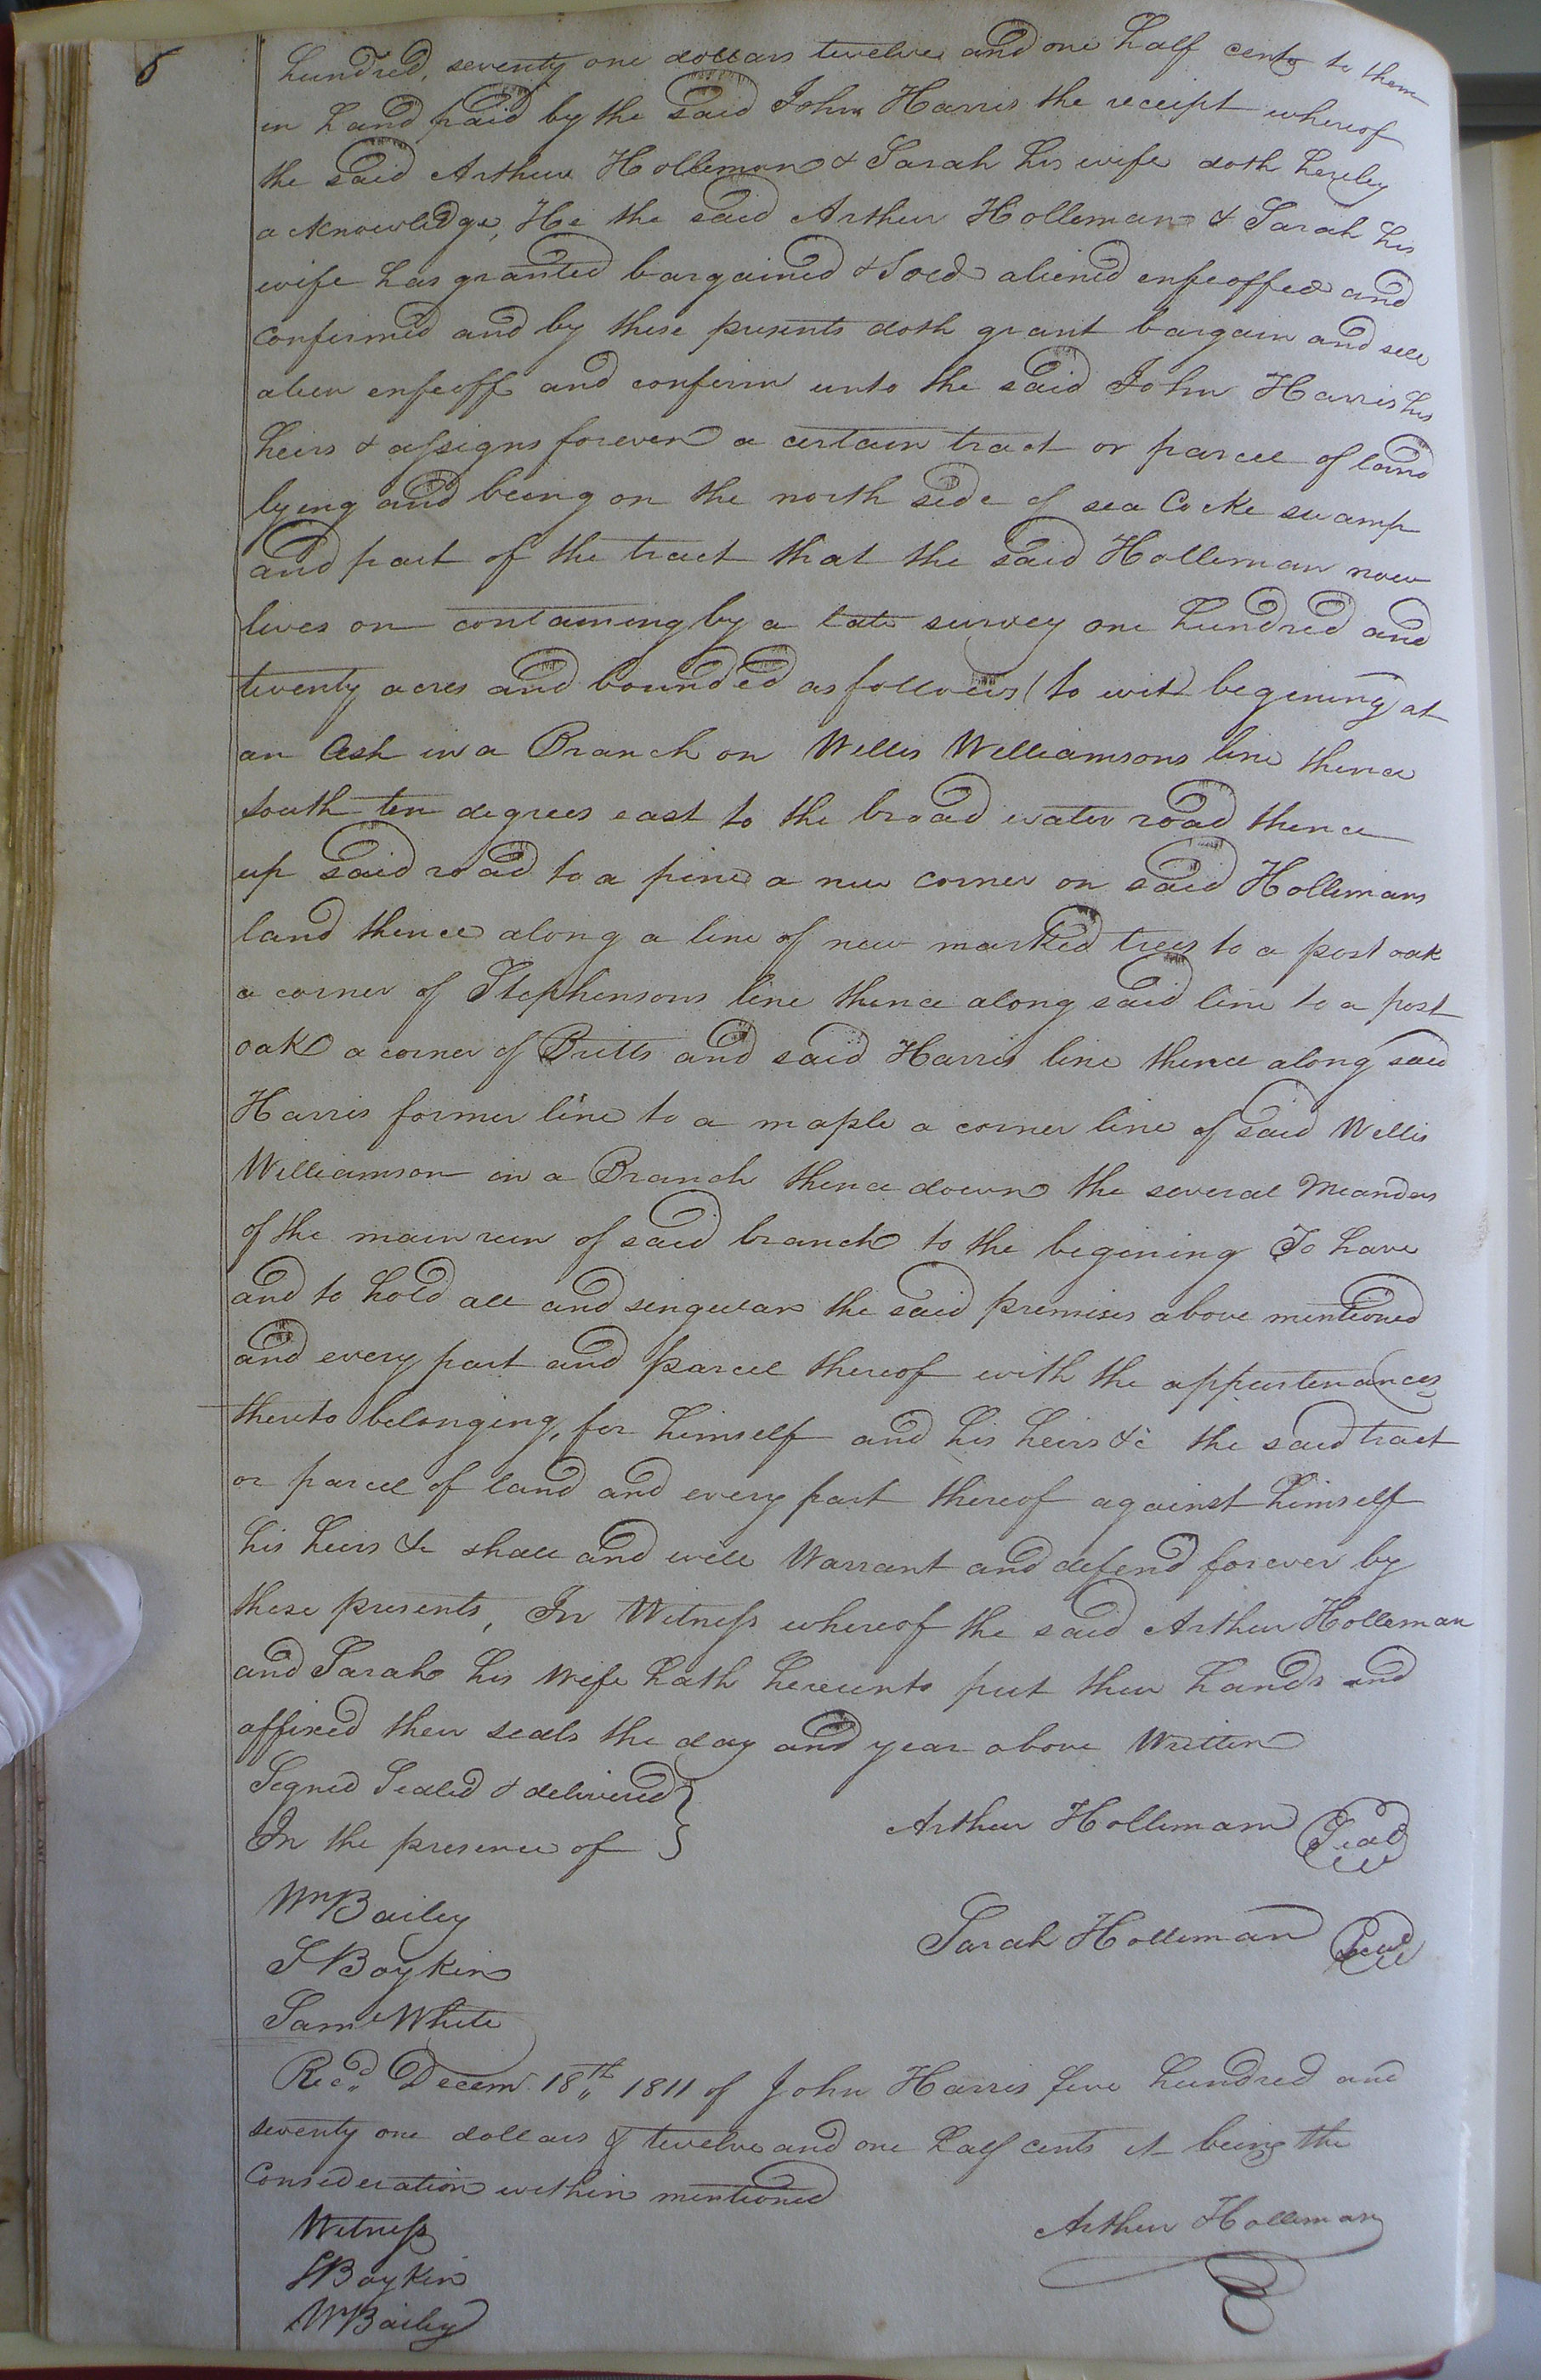 6
hundred, seventy one dollars twelve and one half cents to them
in hand paid by the said John Harris the receipt whereof
the said Arthur Holleman & Sarah his wife doth hereby
acknowledge, He the said Arthur Holleman & Sarah his
wife has granted bargained & sold aliened enfeoffed and
confirmed and by these presents doth grant bargain and sell
alien enfeoff and confirm unto the said John Harris his
heirs & assigns forever a certain tract or parcel of land
lying and being on the north side of sea Cocke swamp
and part of the tract that the said Holleman now
lives on containing by a late survey one hundred and
twenty acres and bounded as follows (to wit) begining at
an Ash in a Branch on Willis Williamsons line thence
south ten degrees east to the broad water road thence
up said road to a pine a new corner on said Hollemans
land thence along a line of new marked trees to a post oak
a corner of Stephensons line thence along said line to a post
oak a corner of Britts and said Harris line thence along said
Harris former line to a maple a corner line of said Willis
Williamson in a Branch thence down the several Meanders
of the main run of said branch to the begining To have
and to hold all and singular the said premises above mentioned
and every part and parcel thereof with the appurtenances
thereto belonging, for himself and his heirs &c the said tract
or parcel of land and every part thereof against himself
his heirs &c shall and will Warrant and defend forever by
these presents, In Witness whereof the said Arthur Holleman
and Sarah his Wife hath hereunto put their hands and
affixed their seals the day and year above Written
Signed Sealed & delivered }
In the presence of }
Arthur Holleman Seal
Wm Bailey
Sarah Holleman Seal
S Boykin
Saml White
Recd. Decem. 18th 1811 of John Harris five hundred and
seventy one dollars & twelve and one half cents it being the
Consideration within mentioned
Witness
Arthur Holleman
S Boykin
Wm Bailey